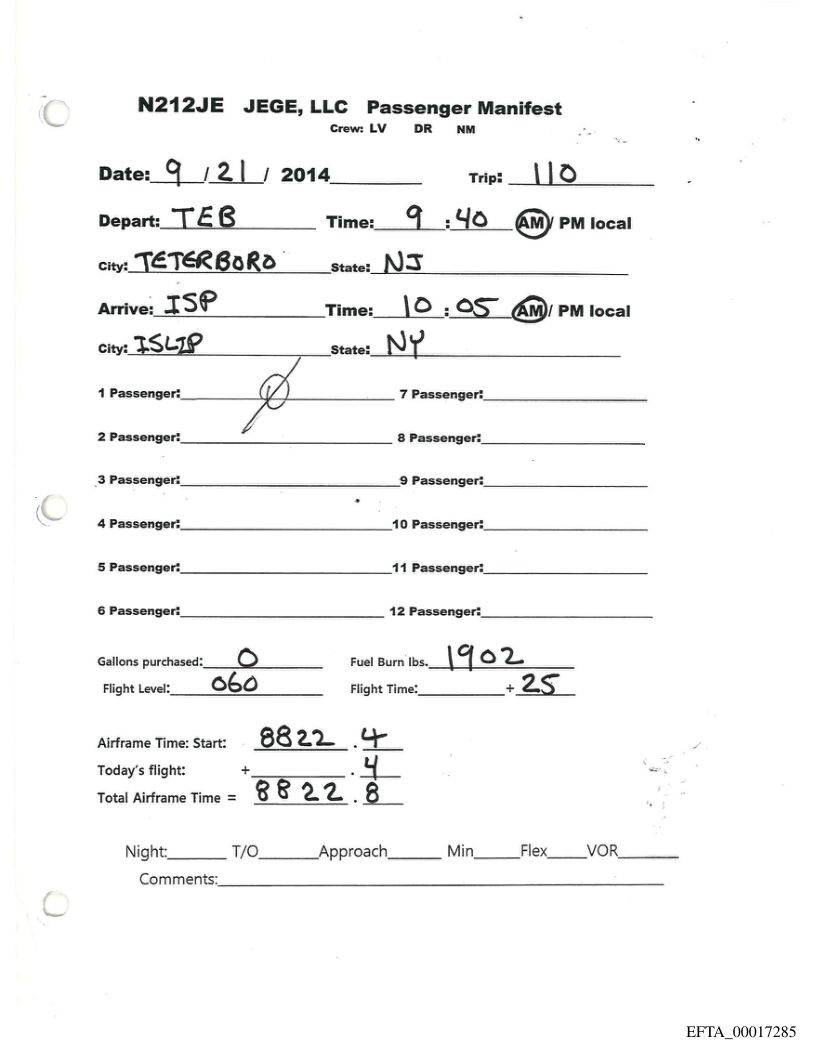 N212JE JEGE, LLC Passenger Manifest
Crew: LV DR NM
Date: 9 / 21 / 2014 Trip: 110
Depart: TEB Time: 9 : 40 AM/ PM local
City: TETERBORO State: NJ
Arrive: ISP Time: 10 : 05 AM/ PM local
City: ISLIP State: NY
1 Passenger: 0 7 Passenger:
2 Passenger: 8 Passenger:
3 Passenger: 9 Passenger:
4 Passenger: 10 Passenger:
5 Passenger: 11 Passenger:
6 Passenger: 12 Passenger:
Gallons purchased: 0 Fuel Burn lbs. 1902
Flight Level: 060 Flight Time: + 25
Airframe Time: Start: 8822 . 4
Today's flight: + . 4
Total Airframe Time = 8822 . 8
Night: T/O Approach Min Flex VOR
Comments:
EFTA_00017285